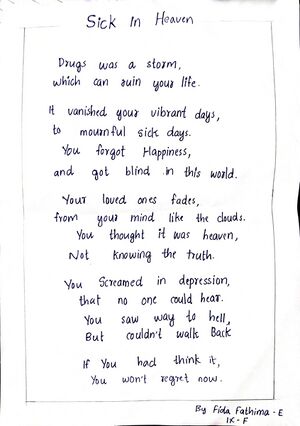 Sick In Heaven
Drugs was a storm,
which can ruin your life.
It vanished your vibrant days,
to mournful sick days.
You forgot Happiness,
and got blind in this world.
Your loved ones fades,
from your mind like the clouds.
You thought it was heaven,
Not knowing the truth.
You Screamed in depression,
that no one could hear.
You saw way to hell,
But couldn't walk Back
If You had think it,
You won't regret now.
By Fida Fathima - E
IX - F